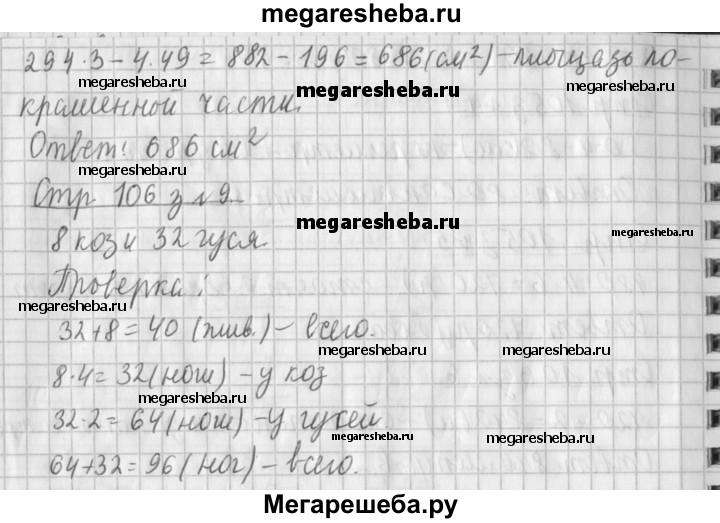 megaresheba.ru
294·3-4·49=882-196=686(см²)-площадь по-
крашенной части.
megaresheba.ru
Ответ: 686 см²
megaresheba.ru
Стр 106 з №9.
megaresheba.ru
megaresheba.ru
8 коз и 32 гуся.
Проверка:
megaresheba.ru
megaresheba.ru
32+8=40 (жив.)-всего.
megaresheba.ru
8·4=32(ног) -у коз
32·2=64(ног)-у гусей.
megaresheba.ru
megaresheba.ru
64+32=96(ног)-всего.
megaresheba.ru
Мегарешеба.ру